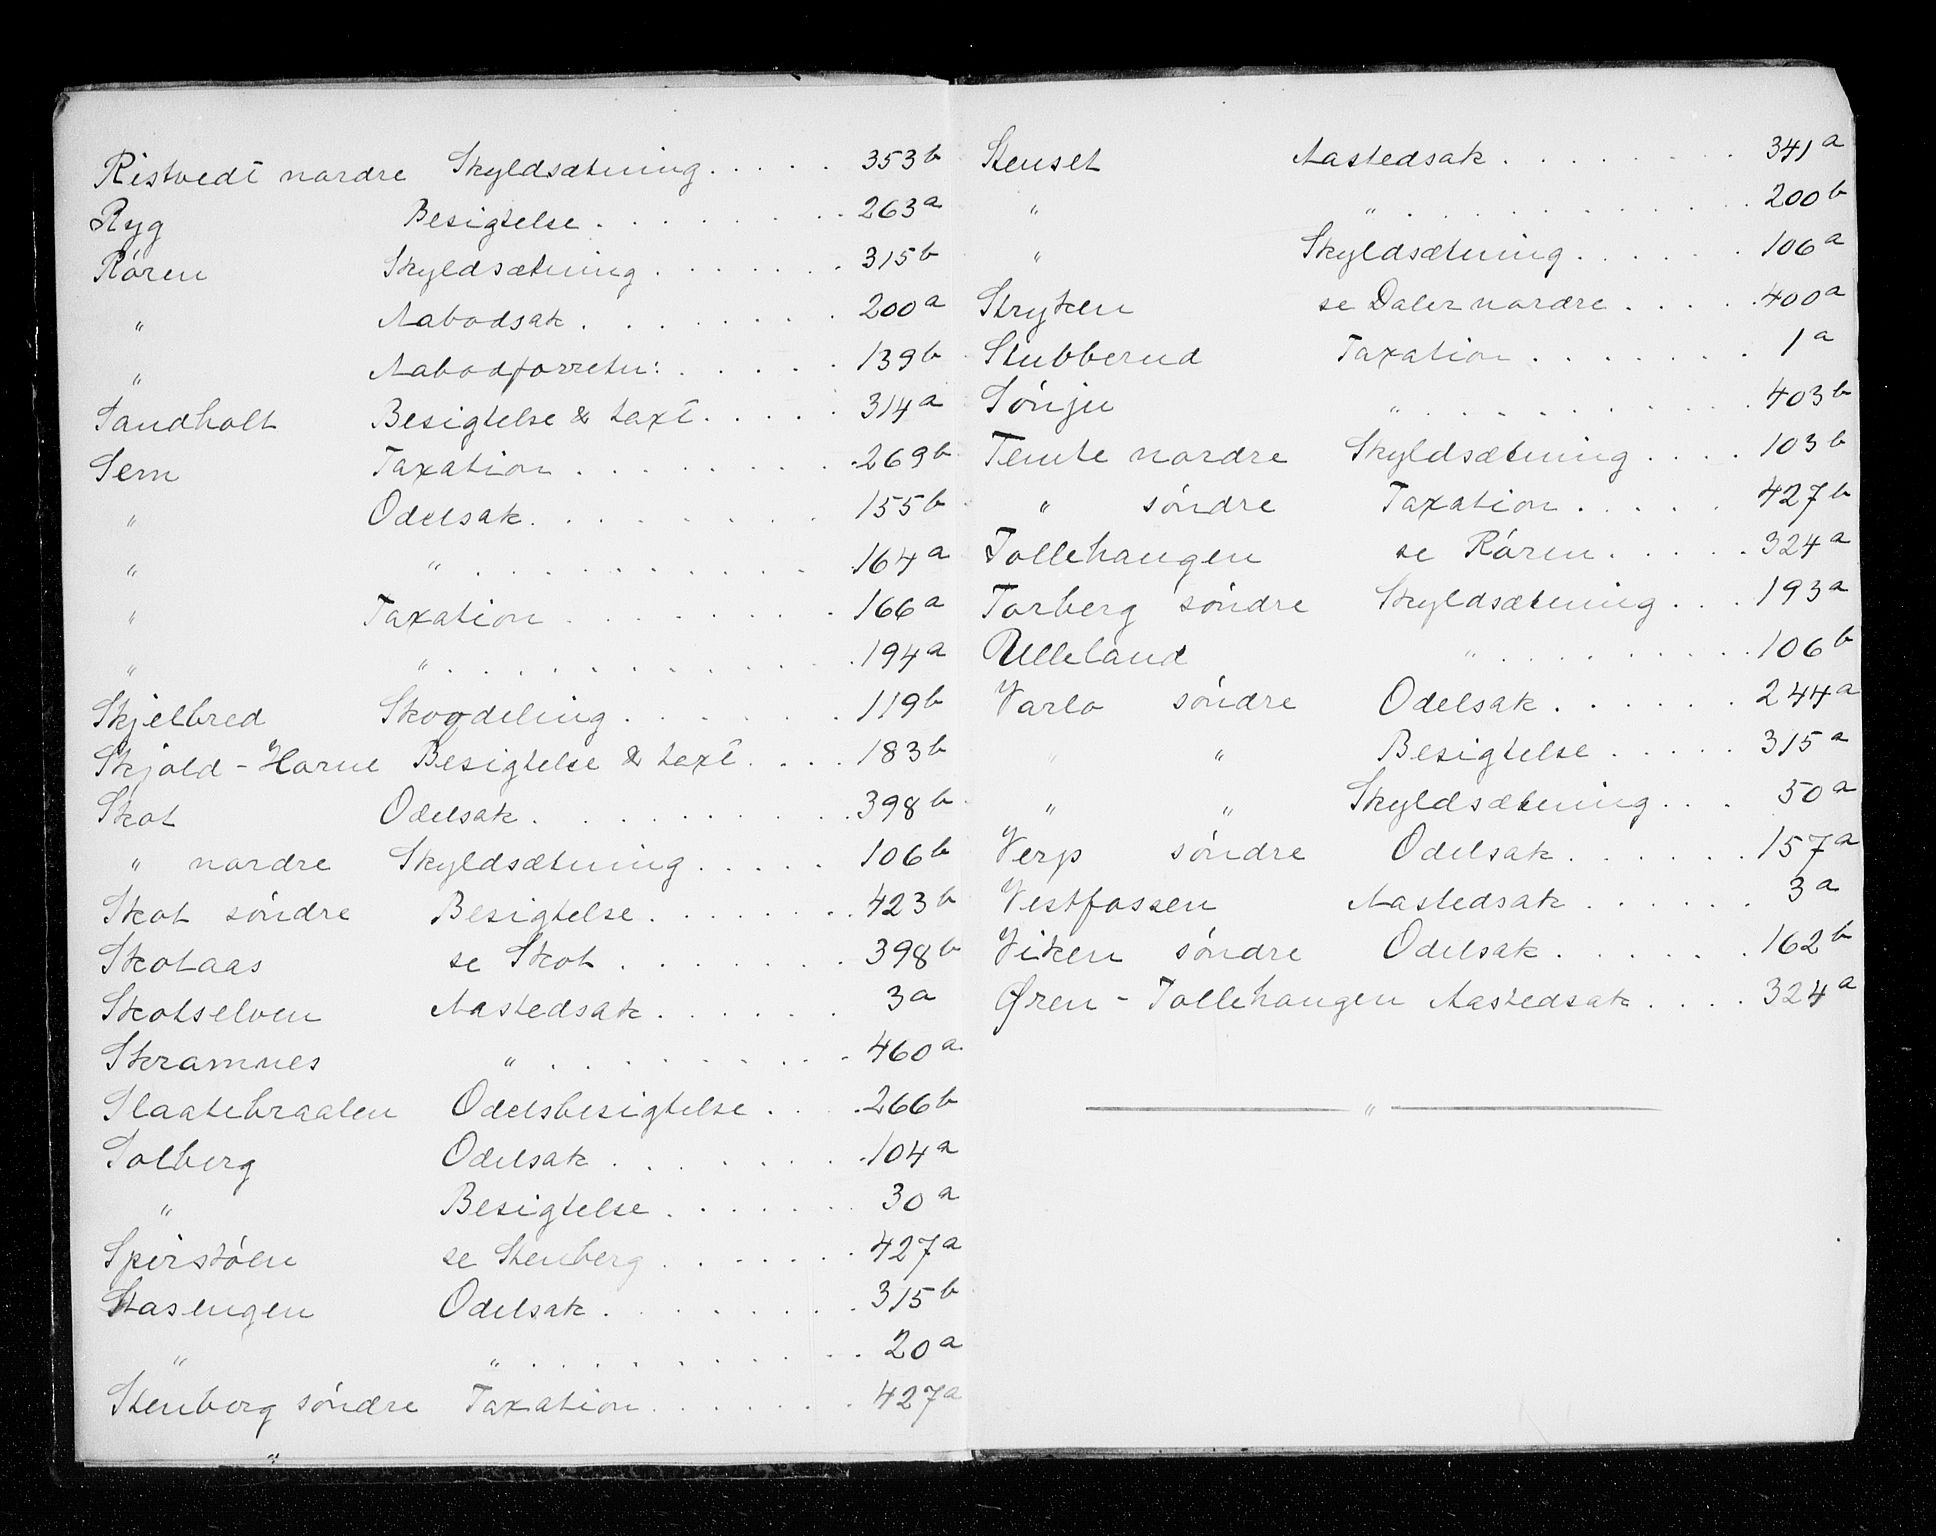 Ristvedt nordre Skyldsætning..... 353b
Ryg Besigtelse........ 263a
Røren Skyldsætning....... 315b
" Aabodsak........ 200a
" Aabodforretn:..... 139b
Sandholt Besigtelse & taxt..... 314a
Sem Taxation......... 269b
" Odelsak........ 155b
" "........... 164a
" Taxation........ 166a
" "............. 194a
Skjelbred Skogdeling....... 119b
Skjold-Horne Besigtelse & taxt.... 183b
Skot Odelsak.......... 398b
" nordre Skyldsætning..... 106b
Skot søndre Besigtelse....... 423b
Skotaas se Skot........ 398b
Skotselven Aastedsak....... 3a
Skramnes "......... 460a
Slaatebraaten Odelsbesigtelse.... 266b
Solberg Odelsak........ 104a
" Besigtelse...... 30a
Spirstøen se Stenberg...... 427a
Stasengen Odelsak........ 315b
" "........... 20a
Stenberg søndre Taxation....... 427a
"
Stenset Aastedsak........ 341a
" "............ 200b
" Skyldsætning...... 106a
Stryken se Daler nordre..... 400a
Stubberud Taxation....... 1a
Sønju "............ 403b
Temte nordre Skyldsætning.... 103b
" søndre Taxation..... 427b
Tollehaugen se Røren..... 324a
Torberg søndre Skyldsætning... 193a
Ulleland ".......... 106b
Varlo søndre Odelsak...... 244a
" " Besigtelse..... 315a
" " Skyldsætning... 50a
Verp søndre Odelsak...... 157a
Vestfossen Aastedsak...... 3a
Viken søndre Odelsak...... 162b
Øren-Tollehaugen Aastedsak.... 324a
"